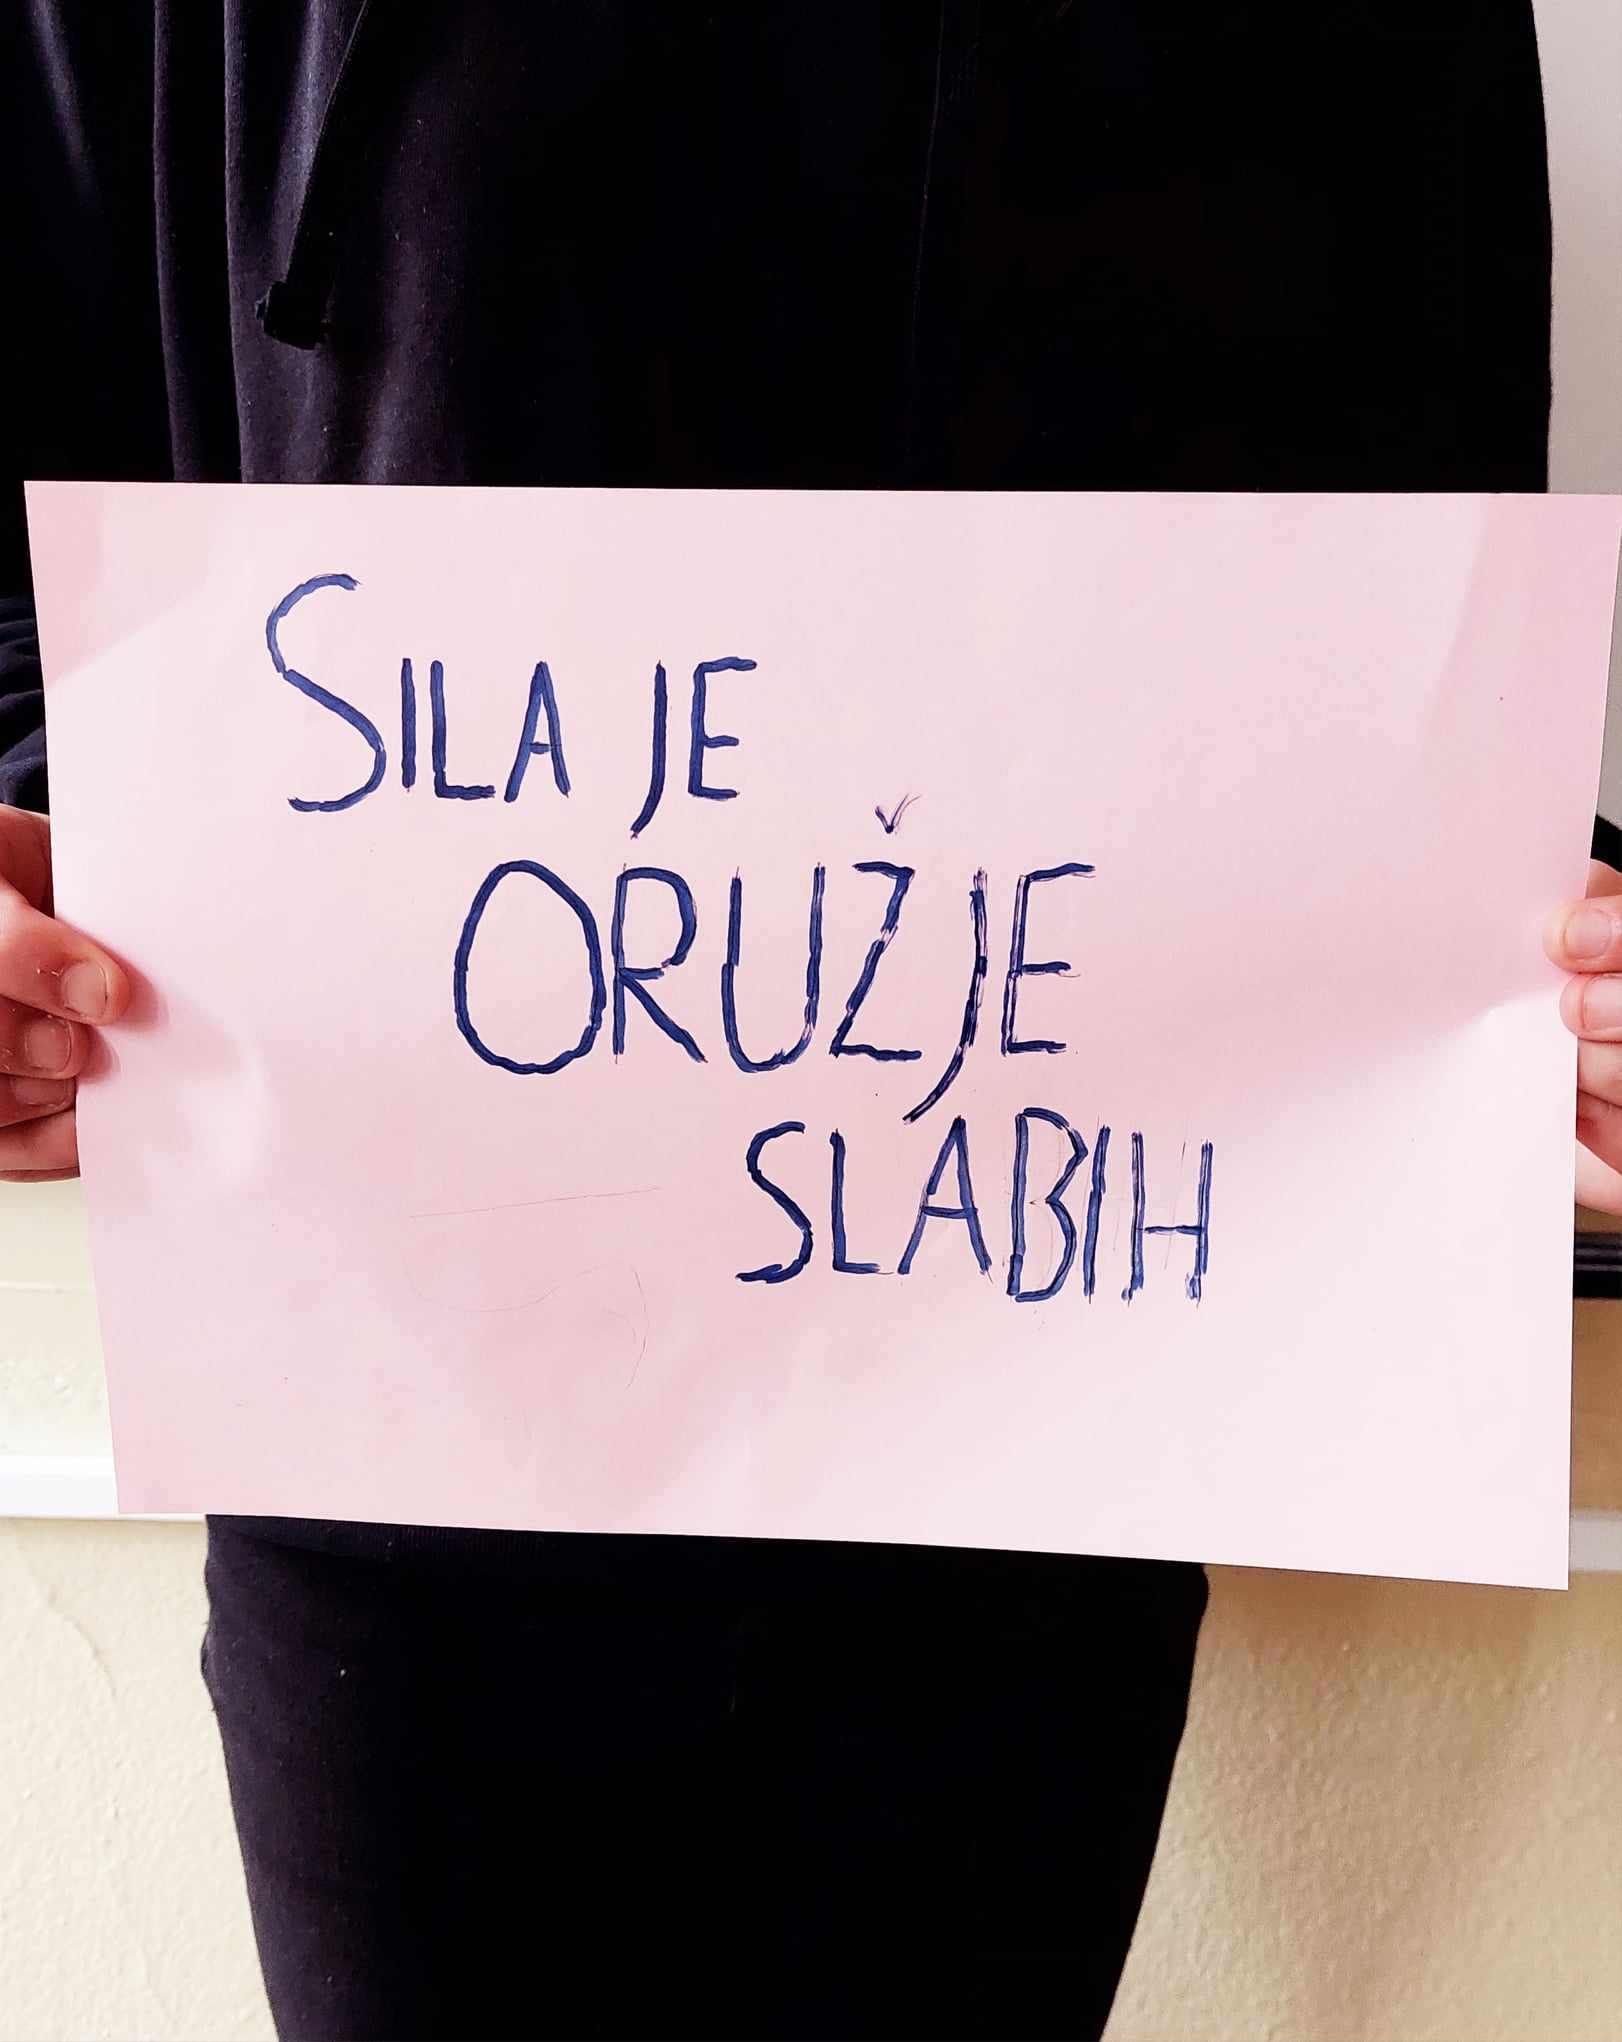 SILA JE
ORUŽJE
SLABIH